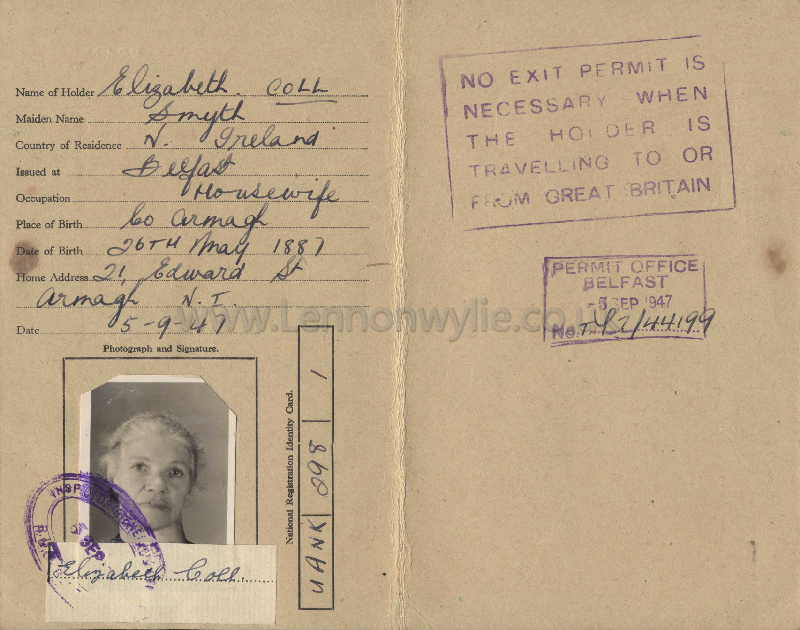 Name of Holder Elizabeth. COLL
Maiden Name Smyth
Country of Residence N. Ireland
Issued at Belfast
Occupation Housewife
Place of Birth Co Armagh
Date of Birth 26TH May 1887
Home Address 21, Edward St
Armagh N. I.
Date 5-9-47
Photograph and Signature.
National Registration Identity Card.
UANK 298 1
5 SEP
Elizabeth Coll.
NO EXIT PERMIT IS
NECESSARY WHEN
THE HOLDER IS
TRAVELLING TO OR
FROM GREAT BRITAIN
PERMIT OFFICE
BELFAST
-5 SEP 1947
No. 42/44199
www.Lennonwylie.co.uk